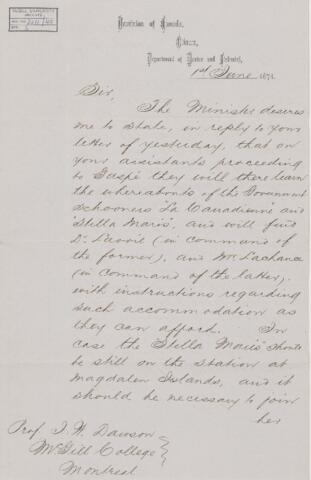 McGILL UNIVERSITY
ARCHIVES
Dominion of Canada,
Ottawa,
Department of Marine and Fisheries,
1st June 1871.
Sir,
The Minister desires
me to state, in reply to your
letter of yesterday, that on
your assistants proceeding
to Gaspé they will there learn
the whereabouts of the Government
Schooners "La Canadienne" and
"Stella Maris", and will find
Dr. Lavoie (in command of
the former), and Mr. Lachance
(in command of the latter),
with instructions regarding
such accommodation as
they can afford. In
case the "Stella Maris" should
be still on the station at
Magdalen Islands, and it
should be necessary to join
her
Prof. J. W. Dawson
McGill College
Montreal